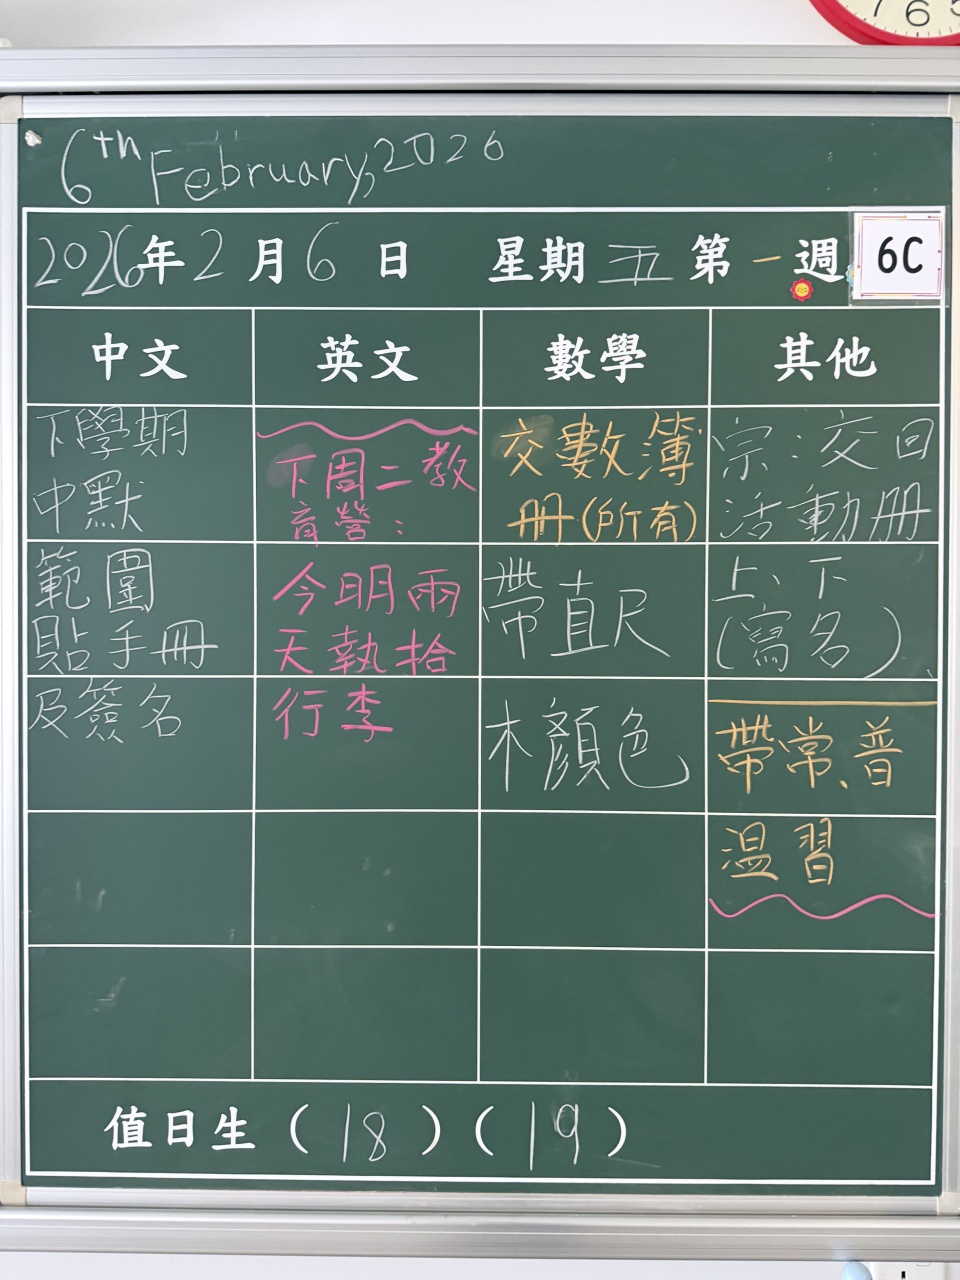 7 6 5
6th February, 2026
2026年2月6日 星期五 第一週 6C
中文 英文 數學 其他
下學期
中默
範圍
貼手冊
及簽名
下周二教
育營：
今明兩
天執拾
行李
交數簿
冊(所有)
帶直尺
木顏色
宗：交回
活動冊
上、下
(寫名)、
帶常、普
温習
值日生（18）（19）